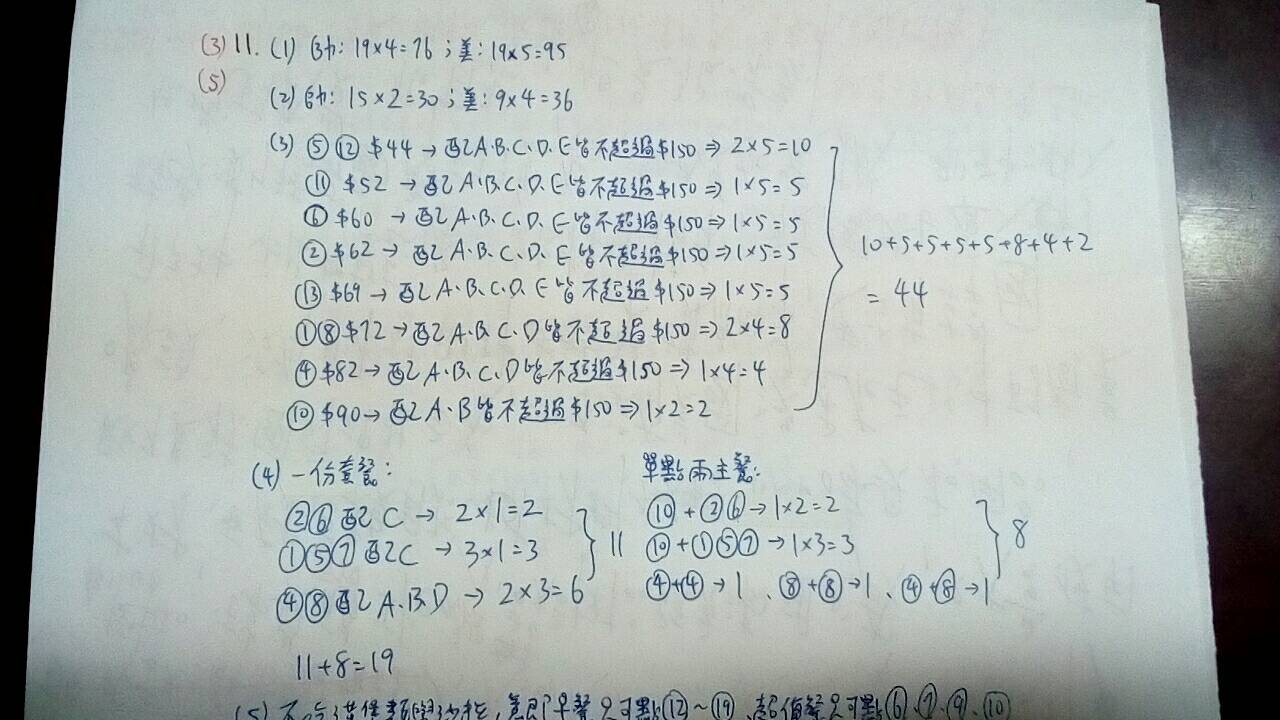 (3) 11. (1) 帥: 19×4=76 ; 美: 19×5=95
(5)
(2) 帥: 15×2=30 ; 美: 9×4=36
(3) ⑤⑫ $44 → 配 A.B.C.D.E 皆不超過$150 ⇒ 2×5=10
⑪ $52 → 配 A.B.C.D.E 皆不超過$150 ⇒ 1×5=5
⑥ $60 → 配 A.B.C.D.E 皆不超過$150 ⇒ 1×5=5
② $62 → 配 A.B.C.D.E 皆不超過$150 ⇒ 1×5=5
⑬ $69 → 配 A.B.C.D.E 皆不超過$150 ⇒ 1×5=5
①⑧ $72 → 配 A.B.C.D 皆不超過$150 ⇒ 2×4=8
④ $82 → 配 A.B.C.D 皆不超過$150 ⇒ 1×4=4
⑩ $90 → 配 A.B 皆不超過$150 ⇒ 1×2=2
10+5+5+5+5+8+4+2
= 44
(4) 一份套餐:
②⑥ 配 C → 2×1=2
①⑤⑦ 配 C → 3×1=3
④⑧ 配 A.B.D → 2×3=6
11
單點兩主餐:
⑩+②⑥ → 1×2=2
⑩+①⑤⑦ → 1×3=3
④+④ → 1 、⑧+⑧ → 1 、④+⑧ → 1
8
11+8=19
(5) 不吃 早餐只可點⑫~⑲、超值餐只可點⑥.⑦.⑨.⑩